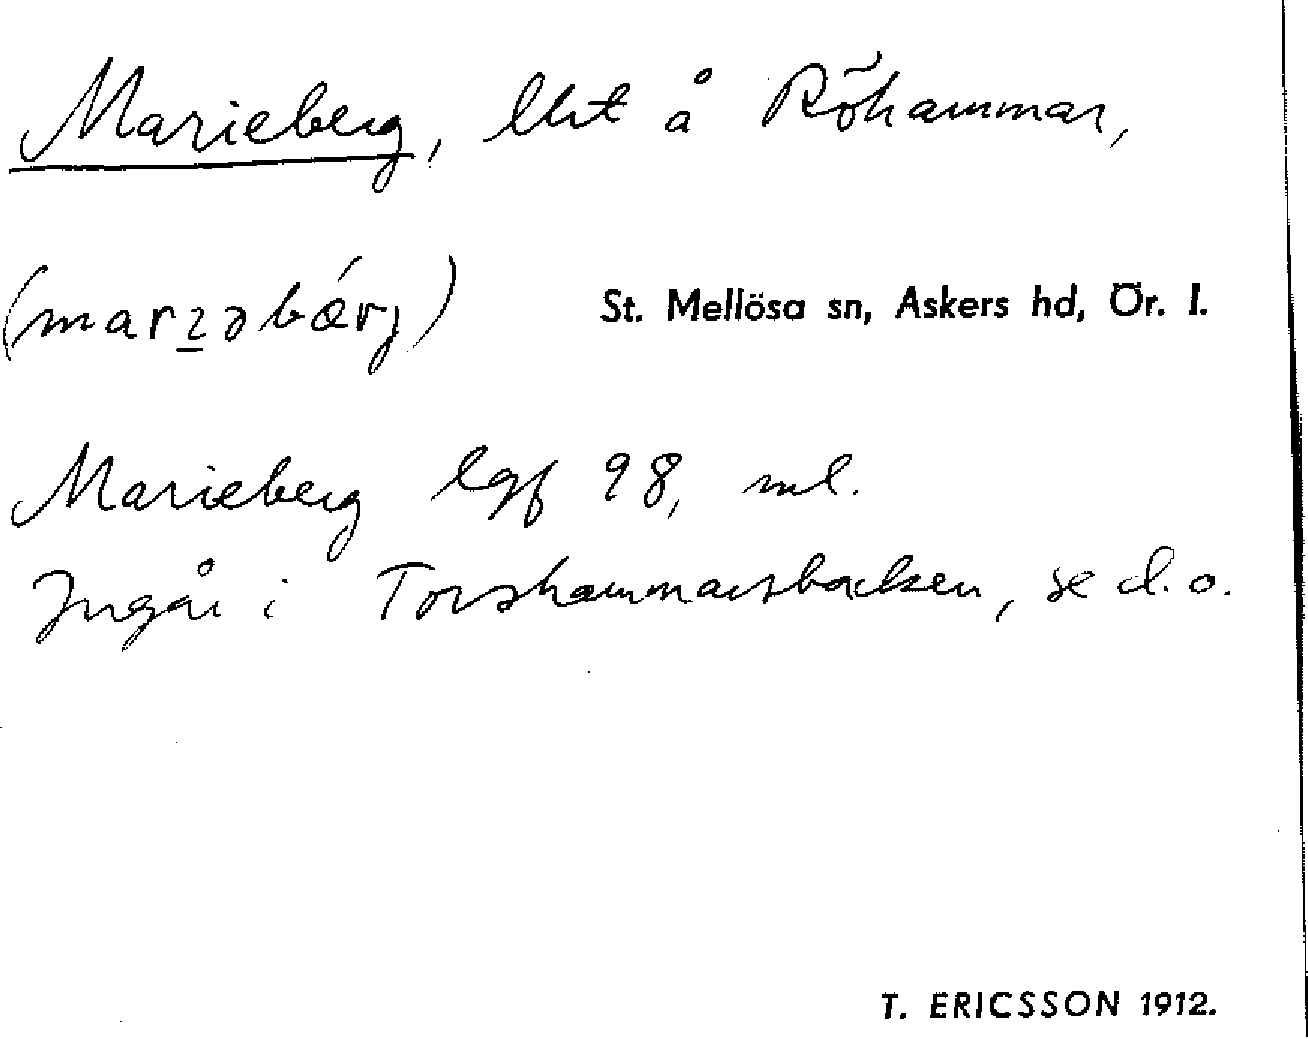 Marieberg, lht å Röhammar,
(marɿəbǽrj)
St. Mellösa sn, Askers hd, Ör. l.
Marieberg lgf 98, ml.
Ingår i Torshammarsbacken, se d.o.
T. ERICSSON 1912.